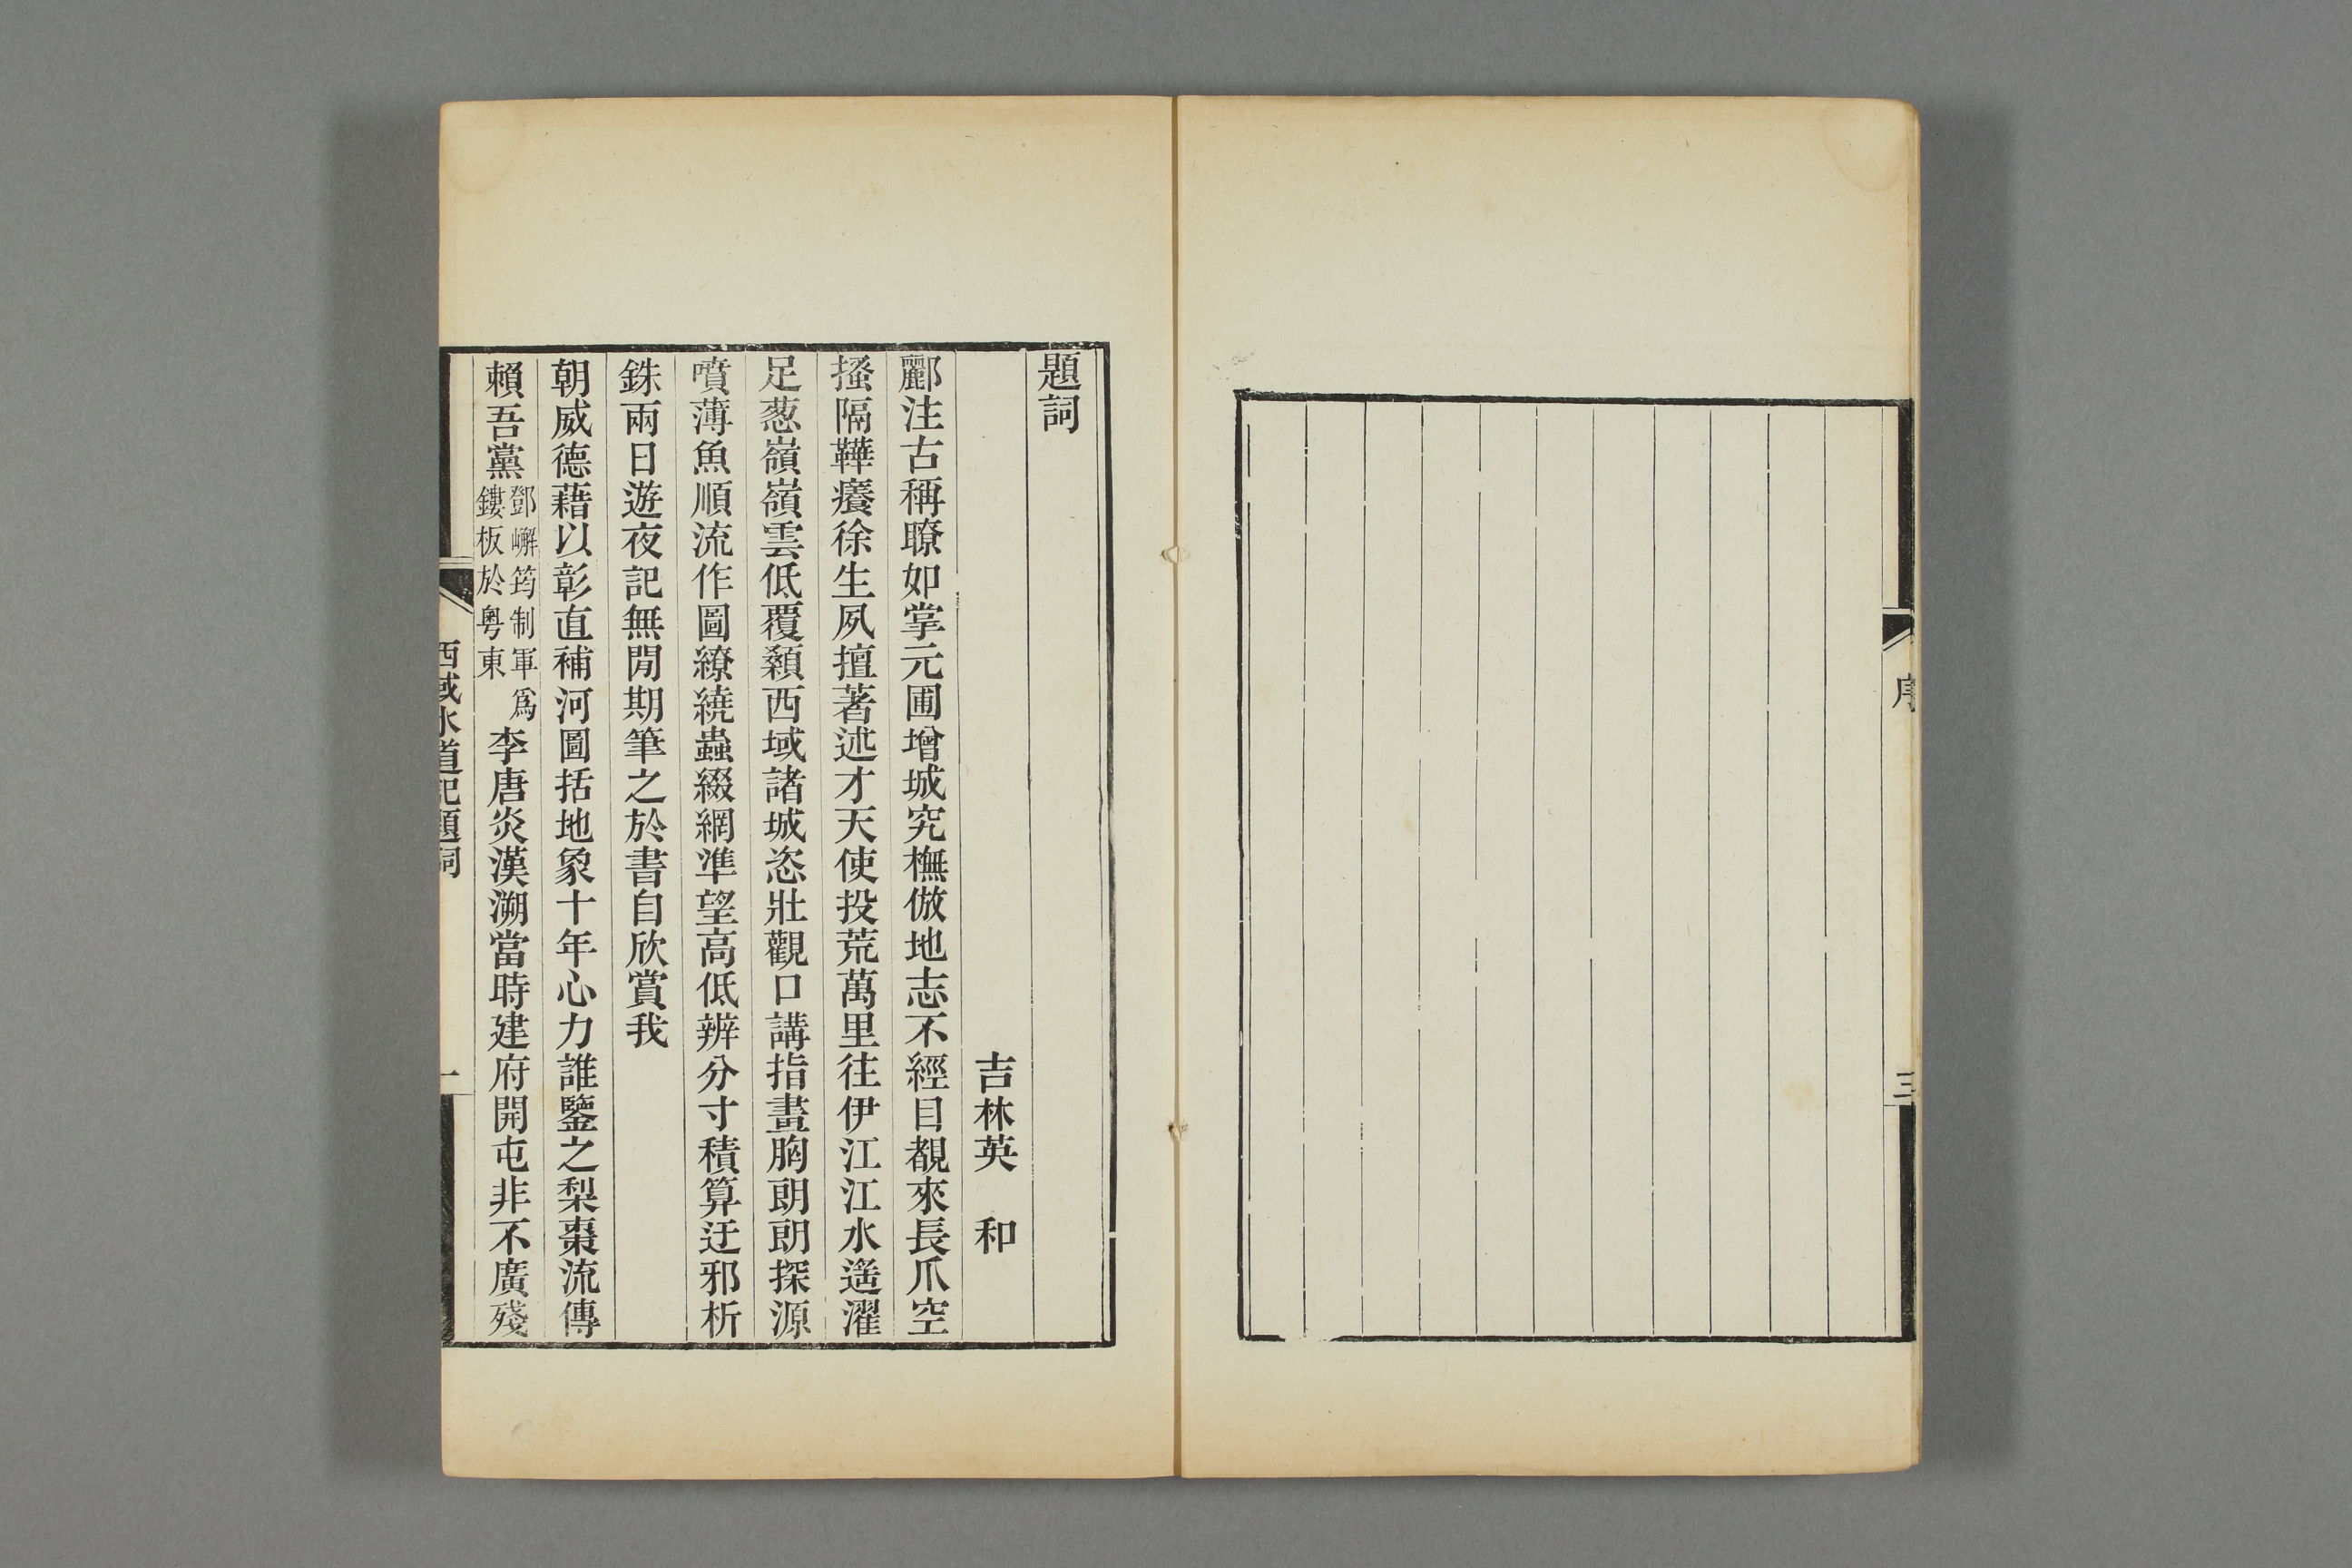 序
三
題詞
吉林英　和
酈注古稱瞭如掌元圃增城究橅倣地志不經目覩來長爪空
搔隔鞾癢徐生夙擅著述才天使投荒萬里往伊江江水遥濯
足葱嶺嶺雲低覆顙西域諸城恣壯觀口講指畫胸朗朗探源
噴薄魚順流作圖繚繞蟲綴網準望高低辨分寸積算迂邪析
銖兩日遊夜記無閒期筆之於書自欣賞我
朝威德藉以彰直補河圖括地象十年心力誰鑒之梨棗流傳
賴吾黨鄧嶰筠制軍爲鏤板於粵東李唐炎漢溯當時建府開屯非不廣殘
西域水道記題詞
一